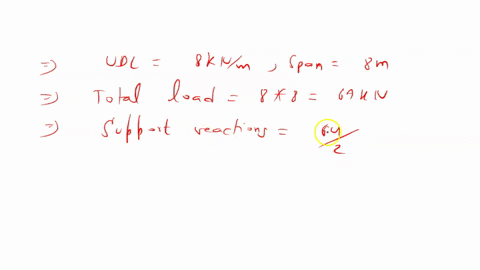 ⇒ UDL = 8 kN/m, Span = 8m
⇒ Total load = 8 * 8 = 64 kN
⇒ Support reactions = 64/2